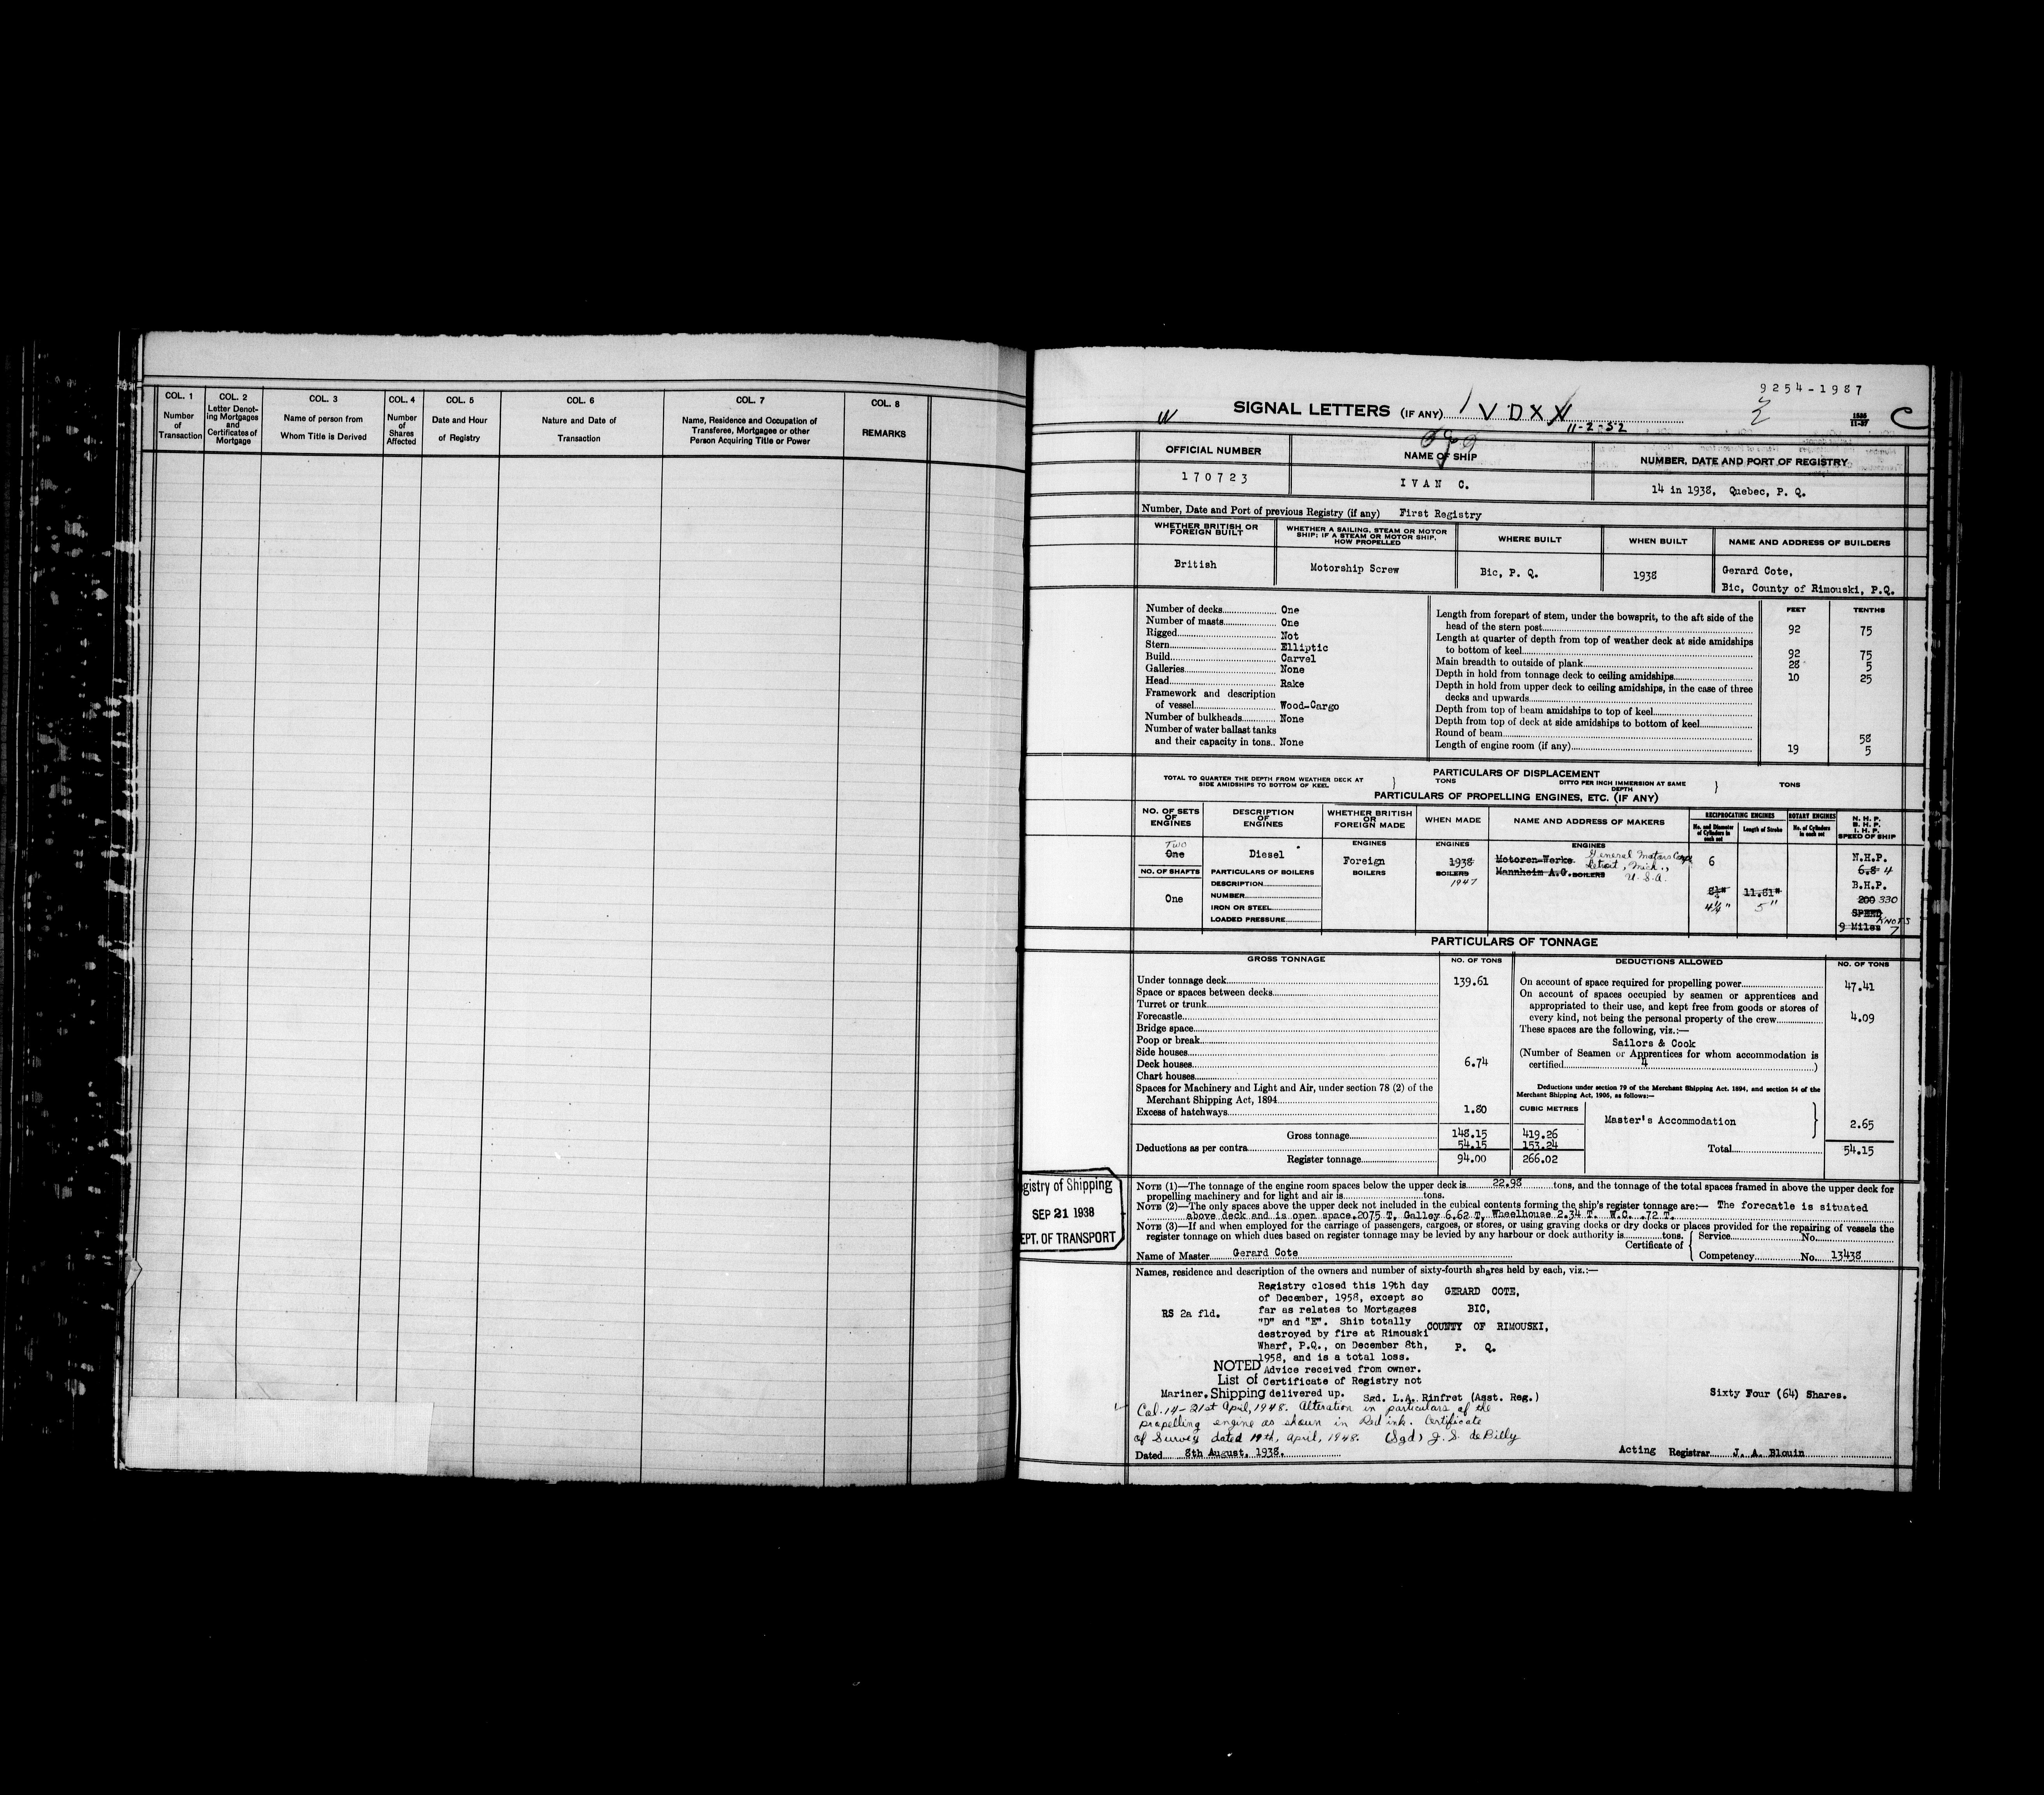 COL. 1
Number
of
Transaction
COL. 2
Letter Denot-
ing Mortgages
and
Certificates of
Mortgage
COL. 3
Name of person from
Whom Title is Derived
COL. 4
Number
of
Shares
Affected
COL. 5
Date and Hour
of Registry
COL. 6
Nature and Date of
Transaction
COL. 7
Name, Residence and Occupation of
Transferee, Mortgagee or other
Person Acquiring Title or Power
COL. 8
REMARKS
9254-1987
SIGNAL LETTERS (IF ANY) V D X
11-2-52
C
OFFICIAL NUMBER
NAME OF SHIP
NUMBER, DATE AND PORT OF REGISTRY
170723
IVAN C.
14 in 1938, Quebec, P. Q.
Number, Date and Port of previous Registry (if any) First Registry
WHETHER BRITISH OR
FOREIGN BUILT
WHETHER A SAILING, STEAM OR MOTOR
SHIP; IF A STEAM OR MOTOR SHIP,
HOW PROPELLED
WHERE BUILT
WHEN BUILT
NAME AND ADDRESS OF BUILDERS
British
Motorship Screw
Bic, P. Q.
1938
Gerard Cote,
Bic, County of Rimouski, P.Q.
Number of decks One
Number of masts One
Rigged Not
Stern Elliptic
Build Carvel
Galleries None
Head Rake
Framework and description
of vessel Wood-Cargo
Number of bulkheads None
Number of water ballast tanks
and their capacity in tons.. None
FEET TENTHS
Length from forepart of stem, under the bowsprit, to the aft side of the
head of the stern post 92 75
Length at quarter of depth from top of weather deck at side amidships
to bottom of keel 92 75
Main breadth to outside of plank 28 5
Depth in hold from tonnage deck to ceiling amidships 10 25
Depth in hold from upper deck to ceiling amidships, in the case of three
decks and upwards
Depth from top of beam amidships to top of keel
Depth from top of deck at side amidships to bottom of keel
Round of beam 58
Length of engine room (if any) 19 5
PARTICULARS OF DISPLACEMENT
TOTAL TO QUARTER THE DEPTH FROM WEATHER DECK AT
SIDE AMIDSHIPS TO BOTTOM OF KEEL } TONS
DITTO PER INCH IMMERSION AT SAME
DEPTH } TONS
PARTICULARS OF PROPELLING ENGINES, ETC. (IF ANY)
NO. OF SETS
OF
ENGINES
DESCRIPTION
OF
ENGINES
WHETHER BRITISH
OR
FOREIGN MADE
WHEN MADE
NAME AND ADDRESS OF MAKERS
RECIPROCATING ENGINES
No. and Diameter
of Cylinders in
each set
Length of Stroke
ROTARY ENGINES
No. of Cylinders
in each set
N. H. P.
B. H. P.
I. H. P.
SPEED OF SHIP
Two
One
Diesel
ENGINES
Foreign
BOILERS
ENGINES
1938
BOILERS
1947
ENGINES
Motoren-Werke
Mannheim A.G. BOILERS
General Motors Corp
Detroit, Mich.,
U.S.A.
6
8¼"
4¼"
11.81"
5"
N.H.P.
6.8 4
B.H.P.
200 330
SPEED
KNOTS
9 Miles 7
NO. OF SHAFTS
One
PARTICULARS OF BOILERS
DESCRIPTION
NUMBER
IRON OR STEEL
LOADED PRESSURE
PARTICULARS OF TONNAGE
GROSS TONNAGE
NO. OF TONS
DEDUCTIONS ALLOWED
NO. OF TONS
Under tonnage deck 139.61
Space or spaces between decks
Turret or trunk
Forecastle
Bridge space
Poop or break
Side houses
Deck houses 6.74
Chart houses
Spaces for Machinery and Light and Air, under section 78 (2) of the
Merchant Shipping Act, 1894
Excess of hatchways 1.80
CUBIC METRES
Gross tonnage 148.15 419.26
Deductions as per contra 54.15 153.24
Register tonnage 94.00 266.02
On account of space required for propelling power 47.41
On account of spaces occupied by seamen or apprentices and
appropriated to their use, and kept free from goods or stores of
every kind, not being the personal property of the crew 4.09
These spaces are the following, viz.:—
Sailors & Cook
(Number of Seamen or Apprentices for whom accommodation is
certified 4 )
Deductions under section 79 of the Merchant Shipping Act, 1894, and section 54 of the
Merchant Shipping Act, 1906, as follows:—
Master's Accommodation 2.65
Total 54.15
gistry of Shipping
SEP 21 1938
EPT. OF TRANSPORT
NOTE (1)—The tonnage of the engine room spaces below the upper deck is 22.98 tons, and the tonnage of the total spaces framed in above the upper deck for
propelling machinery and for light and air is tons.
NOTE (2)—The only spaces above the upper deck not included in the cubical contents forming the ship's register tonnage are:— The forecatle is situated
above deck and is open space.2075 T, Galley 6.62 T, Wheelhouse 2.34 T. W.C. .72 T.
NOTE (3)—If and when employed for the carriage of passengers, cargoes, or stores, or using graving docks or dry docks or places provided for the repairing of vessels the
register tonnage on which dues based on register tonnage may be levied by any harbour or dock authority is tons.
Certificate of { Service No.
Name of Master Gerard Cote
Competency No. 13438
Names, residence and description of the owners and number of sixty-fourth shares held by each, viz.:—
RS 2a fld.
Registry closed this 19th day
of December, 1958, except so
far as relates to Mortgages
"D" and "E". Ship totally
destroyed by fire at Rimouski
Wharf, P.Q., on December 8th,
1958, and is a total loss.
Advice received from owner.
Certificate of Registry not
delivered up. Sgd. L.A. Rinfret (Asst. Reg.)
GERARD COTE,
BIC,
COUNTY OF RIMOUSKI,
P. Q.
NOTED
List of
Shipping
Mariner.
Sixty Four (64) Shares.
Col. 14 - 21st April, 1948. Alteration in particulars of the
propelling engine as shown in Red ink. Certificate
of Survey dated 19th, April, 1948. (Sgd) J. S. de Billy
Dated 8th August, 1938.
Acting Registrar J. A. Blouin